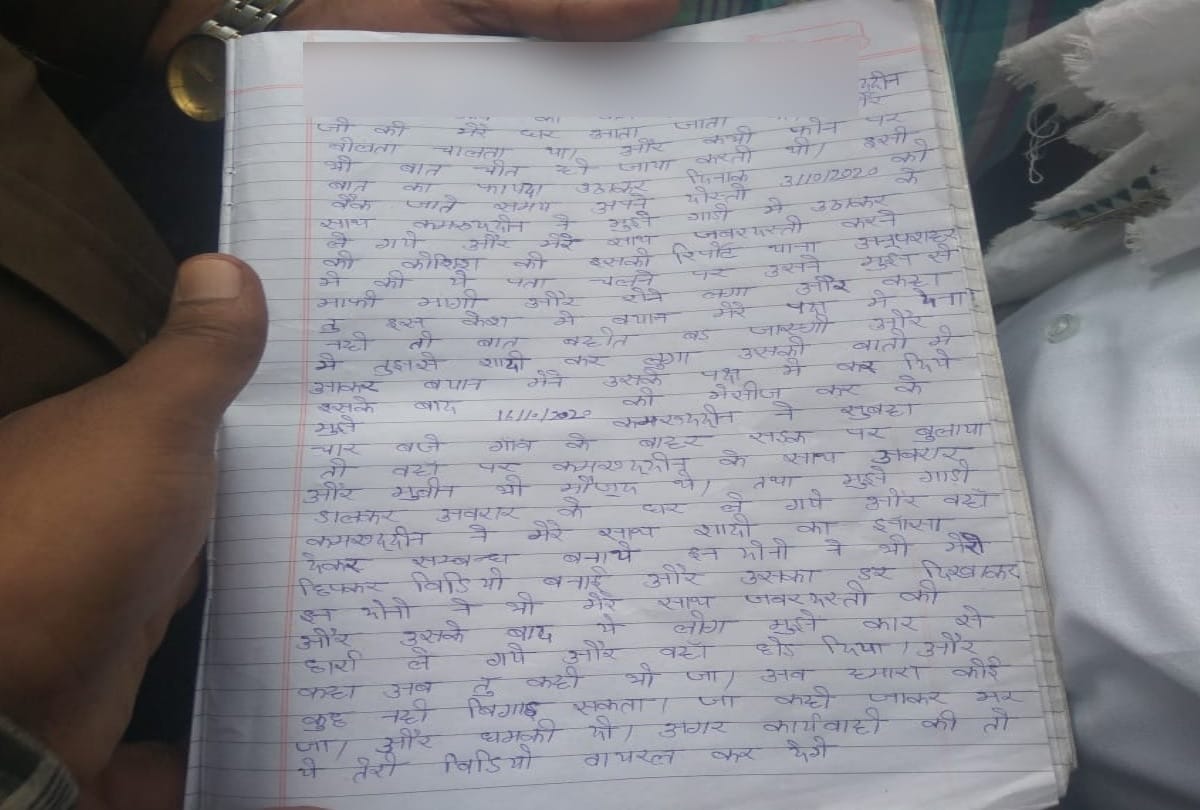 ददीन
जो की मेरे घर आता जाता
बोलता चालता था। और कभी फोन पर
भी बात चीत हो जाया करती थी। इसी
बात का फायदा उठाकर दिनांक 3/10/2020 को
बैंक जाते समय अपने दोस्तो के
साथ कमरुददीन ने मुझे गाडी मे उठाकर
ले गये और मेरे साथ जबरदस्ती करने
की कोशिश की इसकी रिपोर्ट थाना अनुपशहर
मे की ये पता चलने पर उसने मुझ से
माफी मागी और रोने लगा और कहा
तु इस केश मे बयान मेरे पक्ष मे देना
नही तो बात बहोत बड जाएगी और
मे तुझसे शादी कर लुगा उसकी बातो मे
आकर बयान मेने उसके पक्ष मे कर दिये
इसके बाद 16/10/2020 को मेसीज कर के
मुझे कमरुददीन ने सुबहा
चार बजे गाव के बाहर सडक पर बुलाया
तो वहा पर कमरुददीन के साथ अबरार
और मुबीन भी मौजुद थे। तथा मुझे गाडी
डालकर अबरार के घर ले गये और वहाँ
कमरुददीन ने मेरे साथ शादी का इवासा
देकर सम्बन्ध बनाये इन दोनो ने भी मेरी
छिपकर विडियो बनाई और उसका डर दिखाकर
इन दोनो ने भी मेरे साथ जबरदस्ती की
और उसके बाद ये लोग मुझे कार से
ले गये और वहाँ छोड दिया। और
कहा अब तु कही भी जा। अब हमारा कोई
कुछ नही बिगाड सकता। जा कही जाकर मर
जा। और धमकी दी। अगर कार्यवाही की तो
ये तेरी विडियो वायरल कर देगे